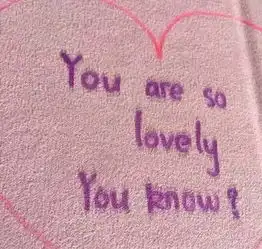 You are so
lovely
You know?